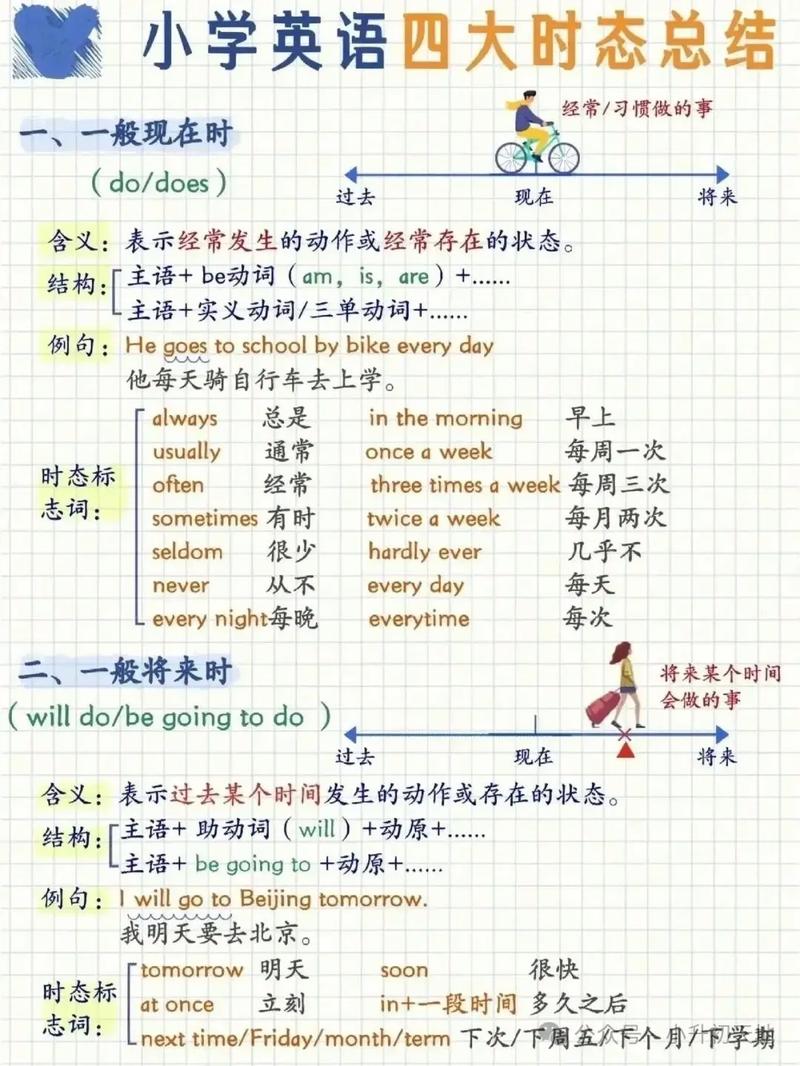 小学英语四大时态总结
一、一般现在时
(do/does)
经常/习惯做的事
过去 现在 将来
含义：表示经常发生的动作或经常存在的状态。
结构：主语+ be动词（am，is，are）+……
主语+实义动词/三单动词+……
例句：He goes to school by bike every day
他每天骑自行车去上学。
时态标志词：
always 总是 in the morning 早上
usually 通常 once a week 每周一次
often 经常 three times a week 每周三次
sometimes 有时 twice a week 每月两次
seldom 很少 hardly ever 几乎不
never 从不 every day 每天
every night每晚 everytime 每次
二、一般将来时
(will do/be going to do )
将来某个时间
会做的事
过去 现在 将来
含义：表示过去某个时间发生的动作或存在的状态。
结构：主语+ 助动词（will）+动原+……
主语+ be going to +动原+……
例句：I will go to Beijing tomorrow.
我明天要去北京。
时态标志词：
tomorrow 明天 soon 很快
at once 立刻 in+一段时间 多久之后
next time/Friday/month/term 下次/下周五/下个月/下学期
公众号